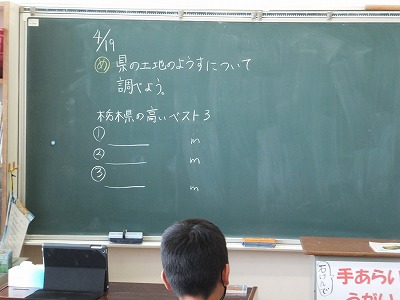 4/19
め 県の土地のようすについて
調べよう。
栃木県の高いベスト3
① m
② m
③ m
石けんで
手あらい
うがい